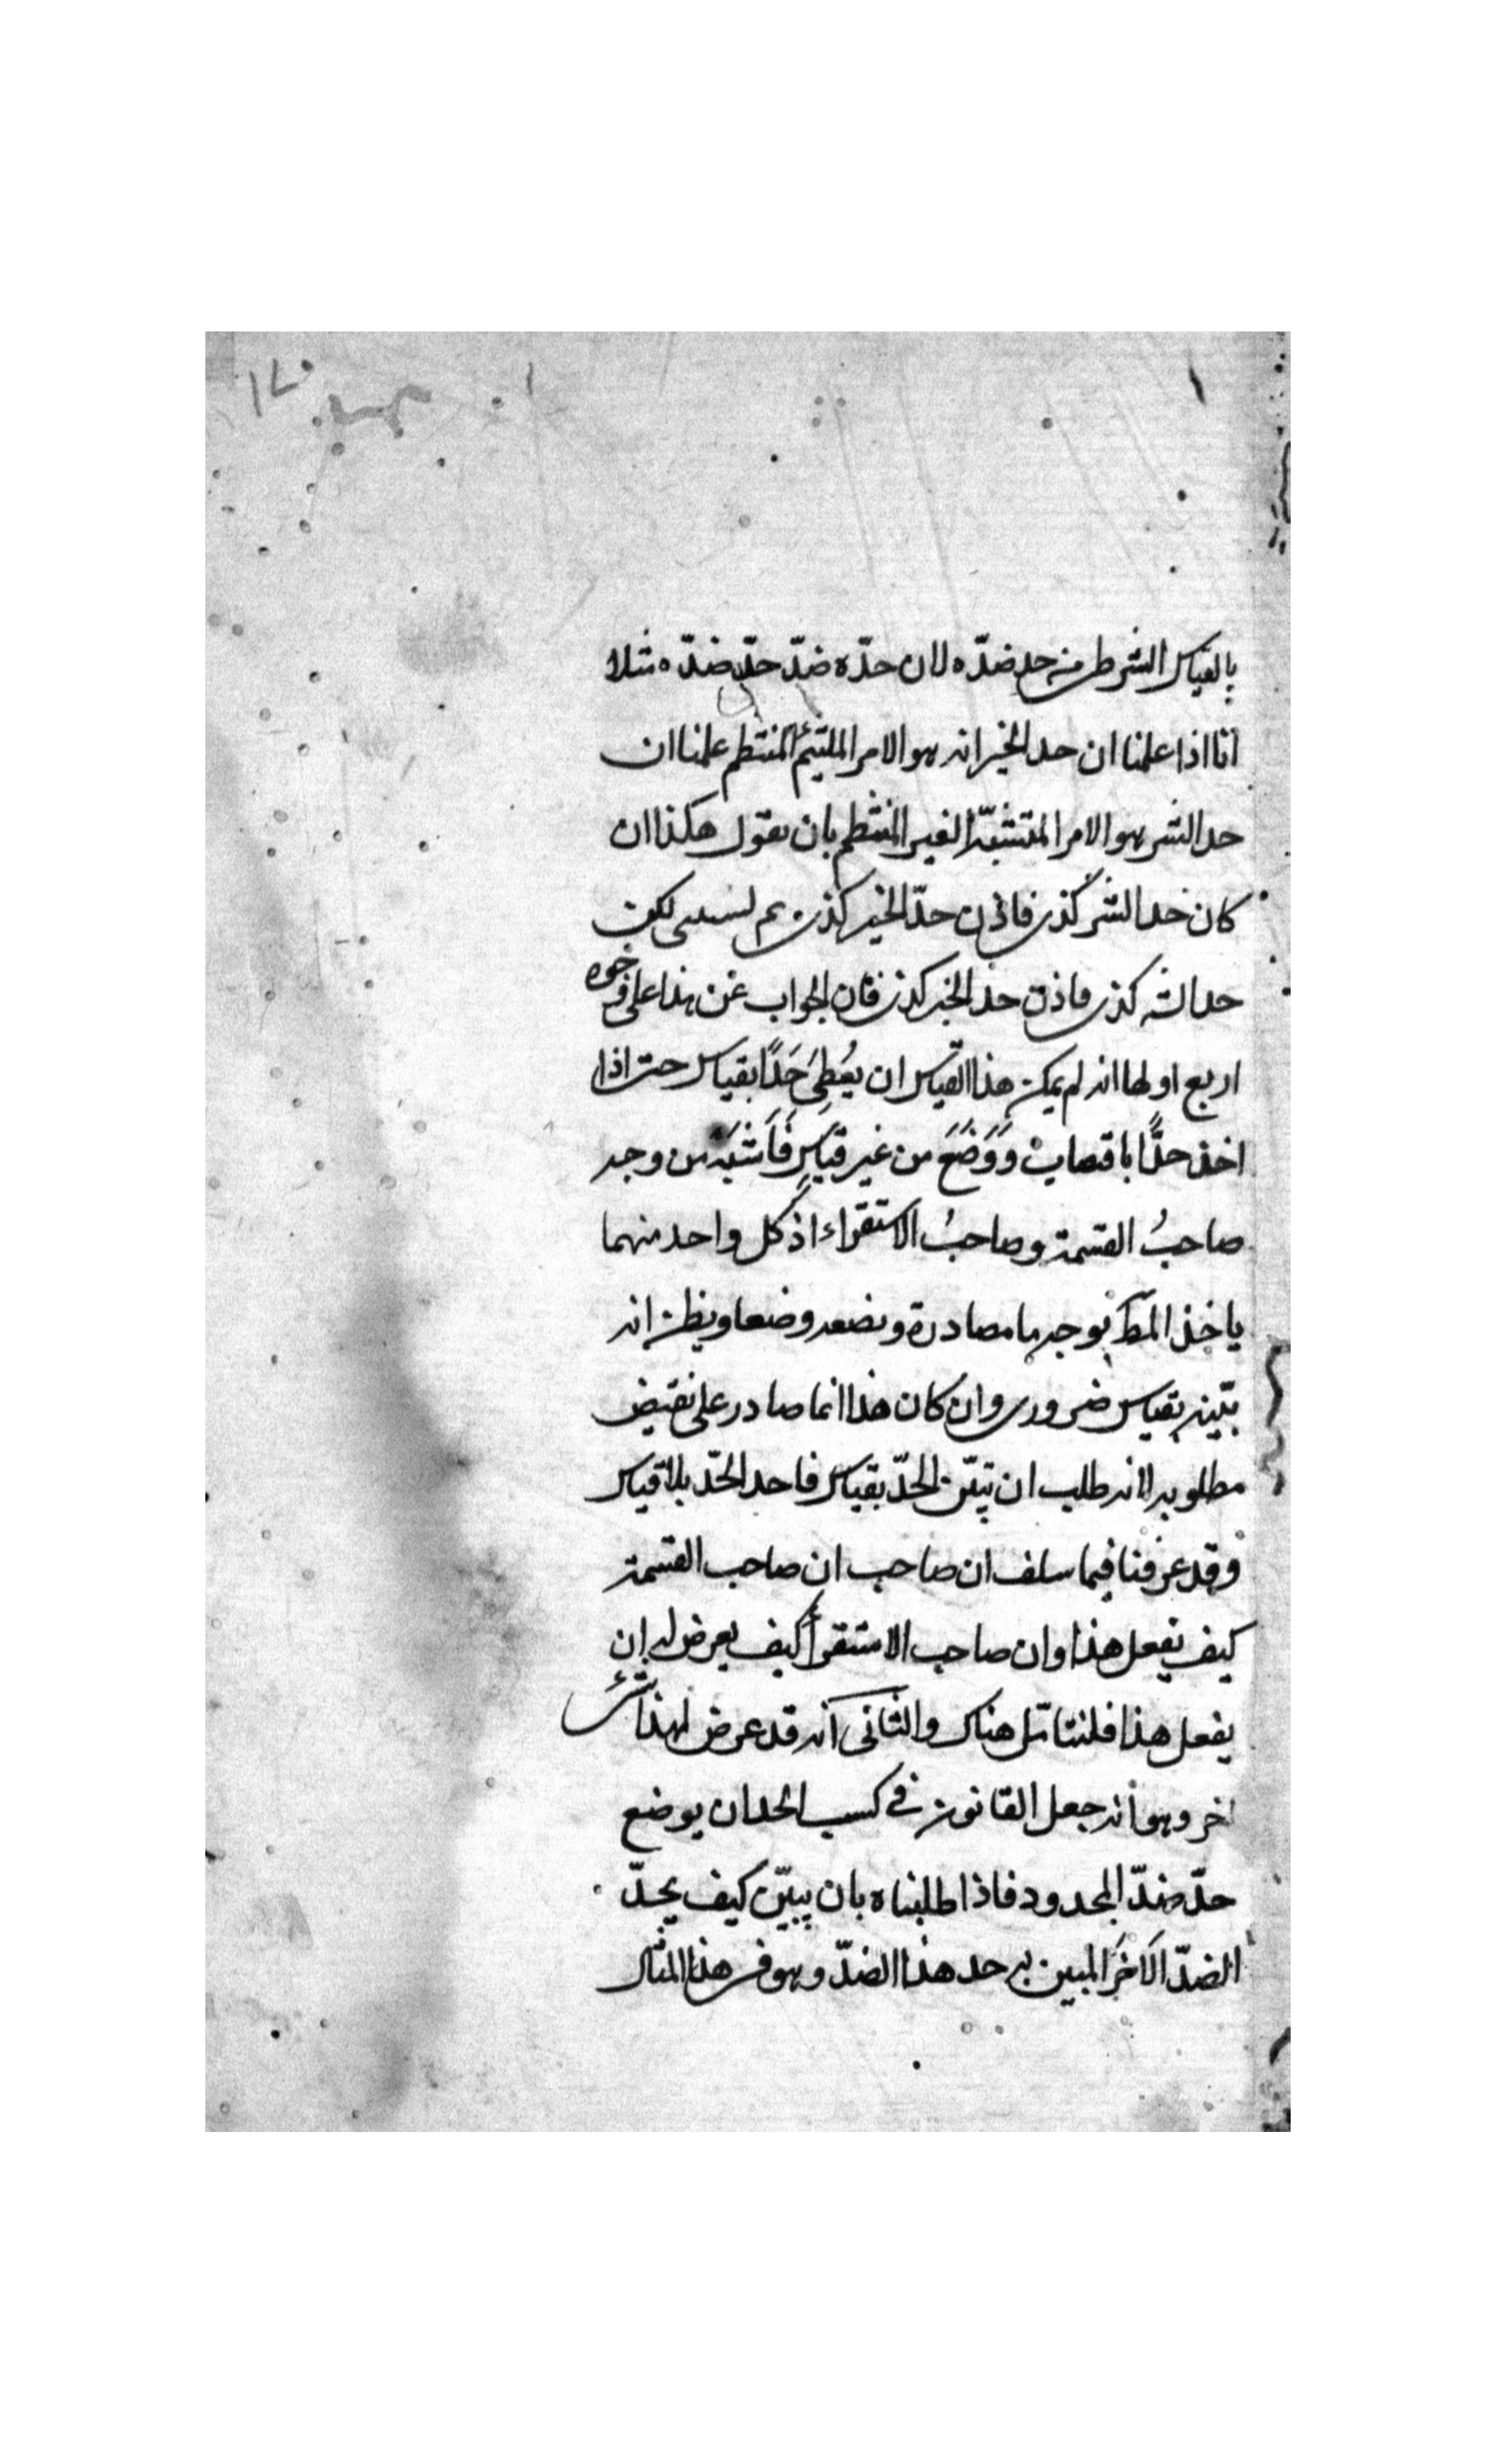 ١٧٠
بالقياس الشرطى من حد ضدّه لان حدّه ضدّ حدّ ضدّه مثلا
انا اذا علمنا ان حد الخير انه هو الامر الملتيئم المنتظم علمنا ان
حد الشر هو الامر المتشتّت الغير المنتظم بان يقول هكذا ان
كان حد الشر كذى فاذن حدّ الخير كذى ثم يستثنى لكن
حد الشر كذى فاذن حد الخير كذى فان الجواب عن هذا على وجوه
اربع اولها انه لم يمكن هذا القياس ان يُعْطِىَ حَدًّا بقياس حتى اذا
اخذ حدًّا باقتصاب وَوَضَعَ من غير قياسٍ فَاَشبَهَ من وجه
صاحبُ القسمة وصاحبُ الاستقراء اذ كل واحد منهما
ياخذ المط بوجه ما مصادرة ويضعه وضعا ويظن انه
بيّنه بقياس ضرورى وان كان هذا انما صادر على نقيض
مطلوبه لانه طلب ان يتبيّن الحدّ بقياس فاخذ الحدّ بلا قياس
وقد عرفنا فيما سلف ان صاحب ان صاحب القسمة
كيف يفعل هذا وان صاحب الاستقراء كيف يعرض له ان
يفعل هذا فلنتامّل هناك والثانى انه قد عرض لهذا شئ
اخر وهو انه جعل القانون فى كسب الحد ان يوضع
حدّ ضدّ المحدود فاذا طلبناه بان يبيّن كيف يحدّ
الضدّ الاخَرَ المبين به حد هذا الضدّ وهو فى هذا المثال